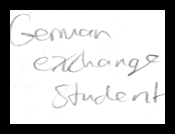 German
exchange
Student